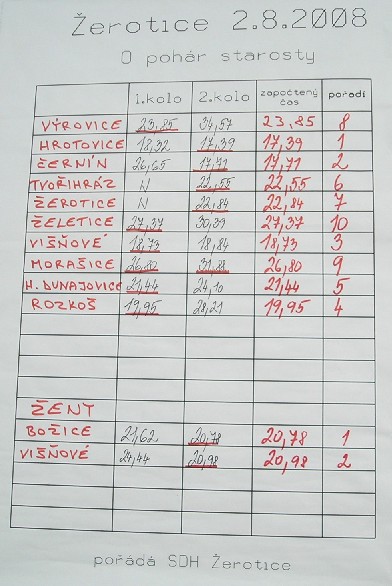 Žerotice 2.8.2008
O pohár starosty
1.kolo 2.kolo započtený čas pořadí
VÝROVICE 23,85 34,57 23,85 8
HROTOVICE 18,32 17,39 17,39 1
ČERNÍN 26,65 17,71 17,71 2
TVOŘIHRÁZ N 22,55 22,55 6
ŽEROTICE N 22,84 22,84 7
ŽELETICE 27,37 30,39 27,37 10
VIŠŇOVÉ 18,73 18,84 18,73 3
MORAŠICE 26,80 31,88 26,80 9
H. DUNAJOVICE 21,44 24,10 21,44 5
ROZKOŠ 19,95 28,21 19,95 4
ŽENY
BOŽICE 21,62 20,78 20,78 1
VIŠŇOVÉ 24,44 20,98 20,98 2
pořádá SDH Žerotice